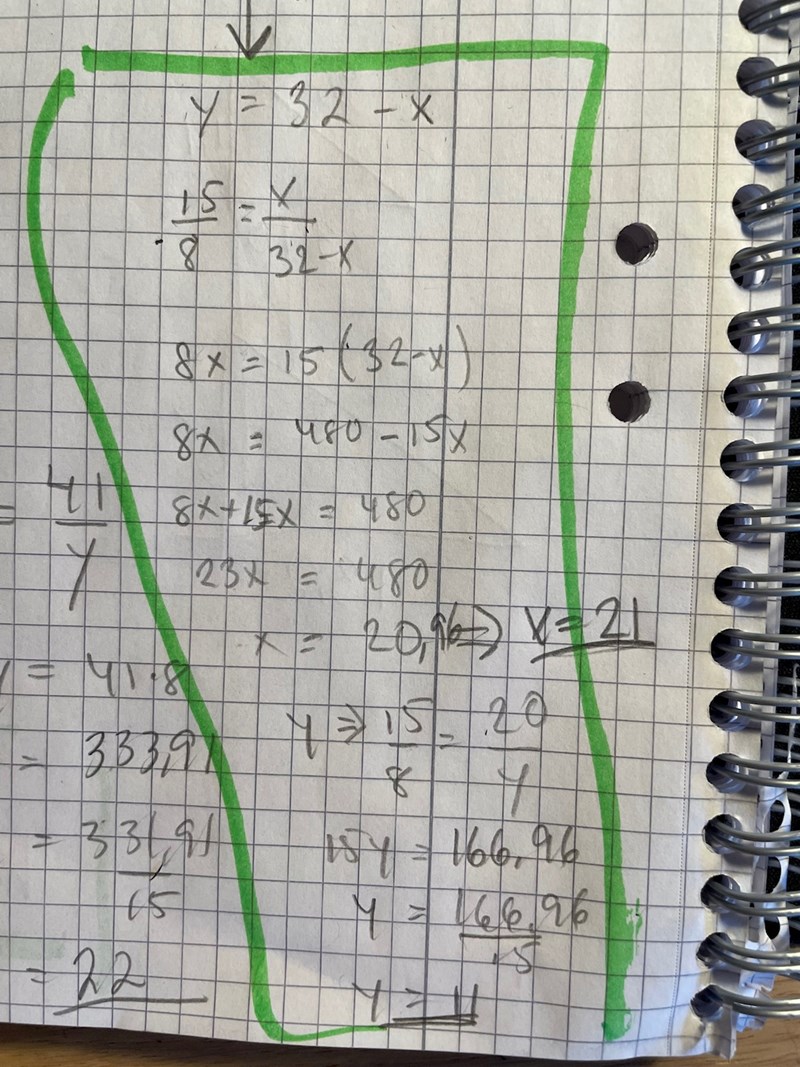 y = 32 - x
15/8 = x/(32-x)
8x = 15(32-x)
8x = 480 - 15x
8x+15x = 480
23x = 480
x = 20,96 ⇒ x = 21
y ⇒ 15/8 = 20/y
15y = 166,96
y = 166,96/15
y = 11
= 41/y
y = 41·8
= 333,91
= 331,91/15
= 22